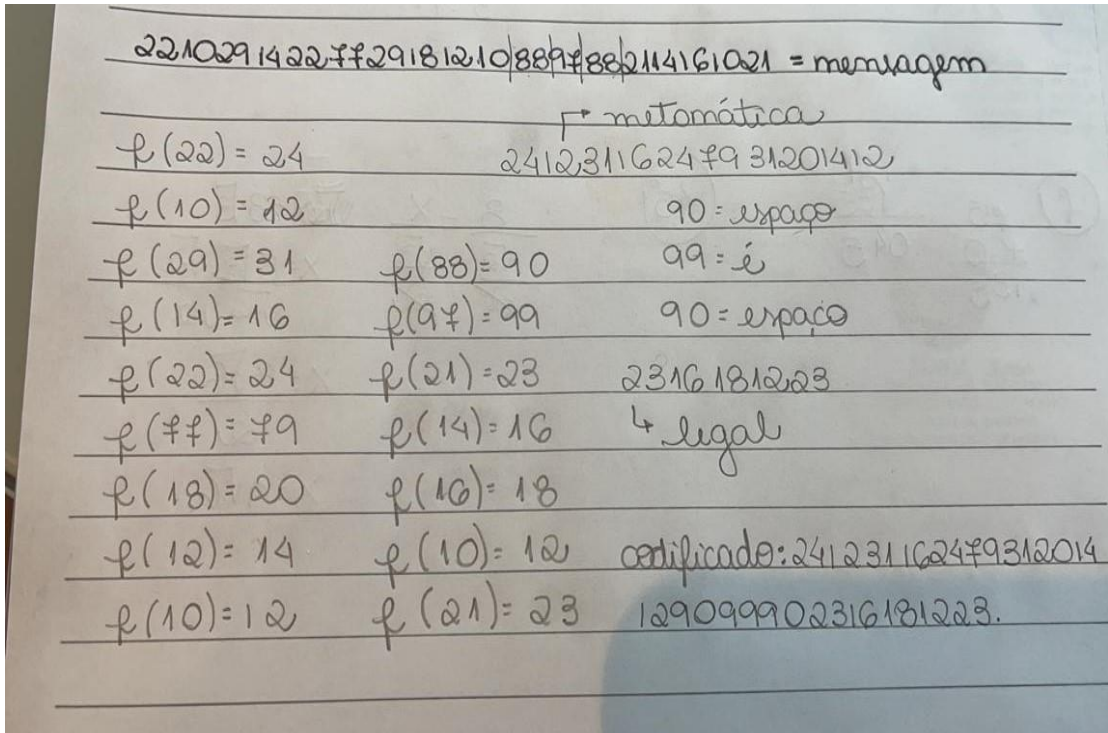 22102914227729181210|88|97|88|2114161021 = mensagem
↱ metomática
f(22) = 24 24123116247931201412
f(10) = 12 90 = espaço
f(29) = 31 f(88) = 90 99 = é
f(14) = 16 f(97) = 99 90 = espaço
f(22) = 24 f(21) = 23 2316181223
f(77) = 79 f(14) = 16 ↳ legal
f(18) = 20 f(16) = 18
f(12) = 14 f(10) = 12 codificado: 241231162479312014
f(10) = 12 f(21) = 23 129099902316181223.